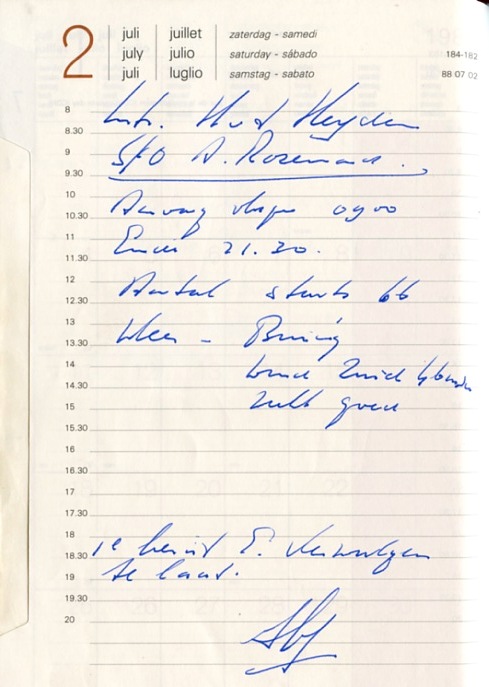 2
juli juillet zaterdag - samedi
july julio saturday - sábado 184-182
juli luglio samstag - sabato 88 07 02
8
Instr. H v d Heyden
8.30
9 S/O A. Rosenaas.
9.30
10 Aanvang vliegen 0900
10.30
11 Einde 21.20.
11.30
12 Aantal starts 66
12.30
13 Weer -
13.30
14 wind Zuid
14.30
15 zicht goed
15.30
16
16.30
17
17.30
18 1e E.
18.30
19 te laat.
19.30
20